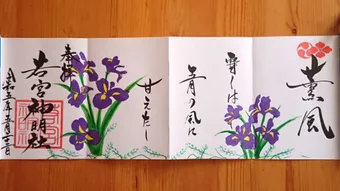 薫風
しは
五月の風に
甘えたし
奉拝
若宮神明社
令和五年五月